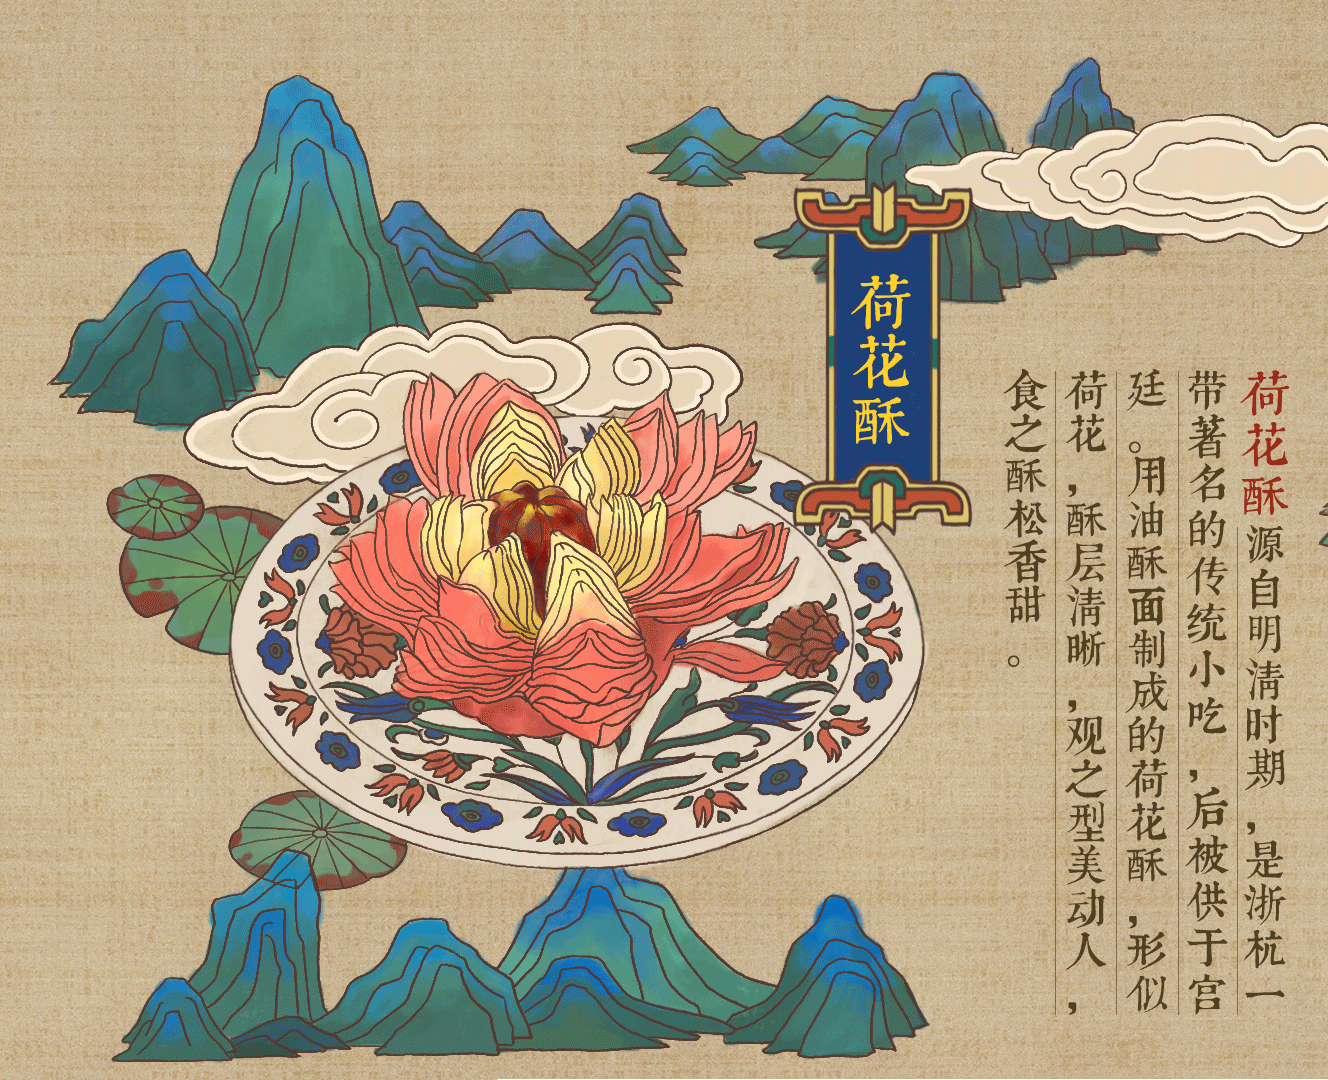 荷花酥
荷花酥源自明清时期，是浙杭一
带著名的传统小吃，后被供于宫
廷。用油酥面制成的荷花酥，形似
荷花，酥层清晰，观之型美动人，
食之酥松香甜。